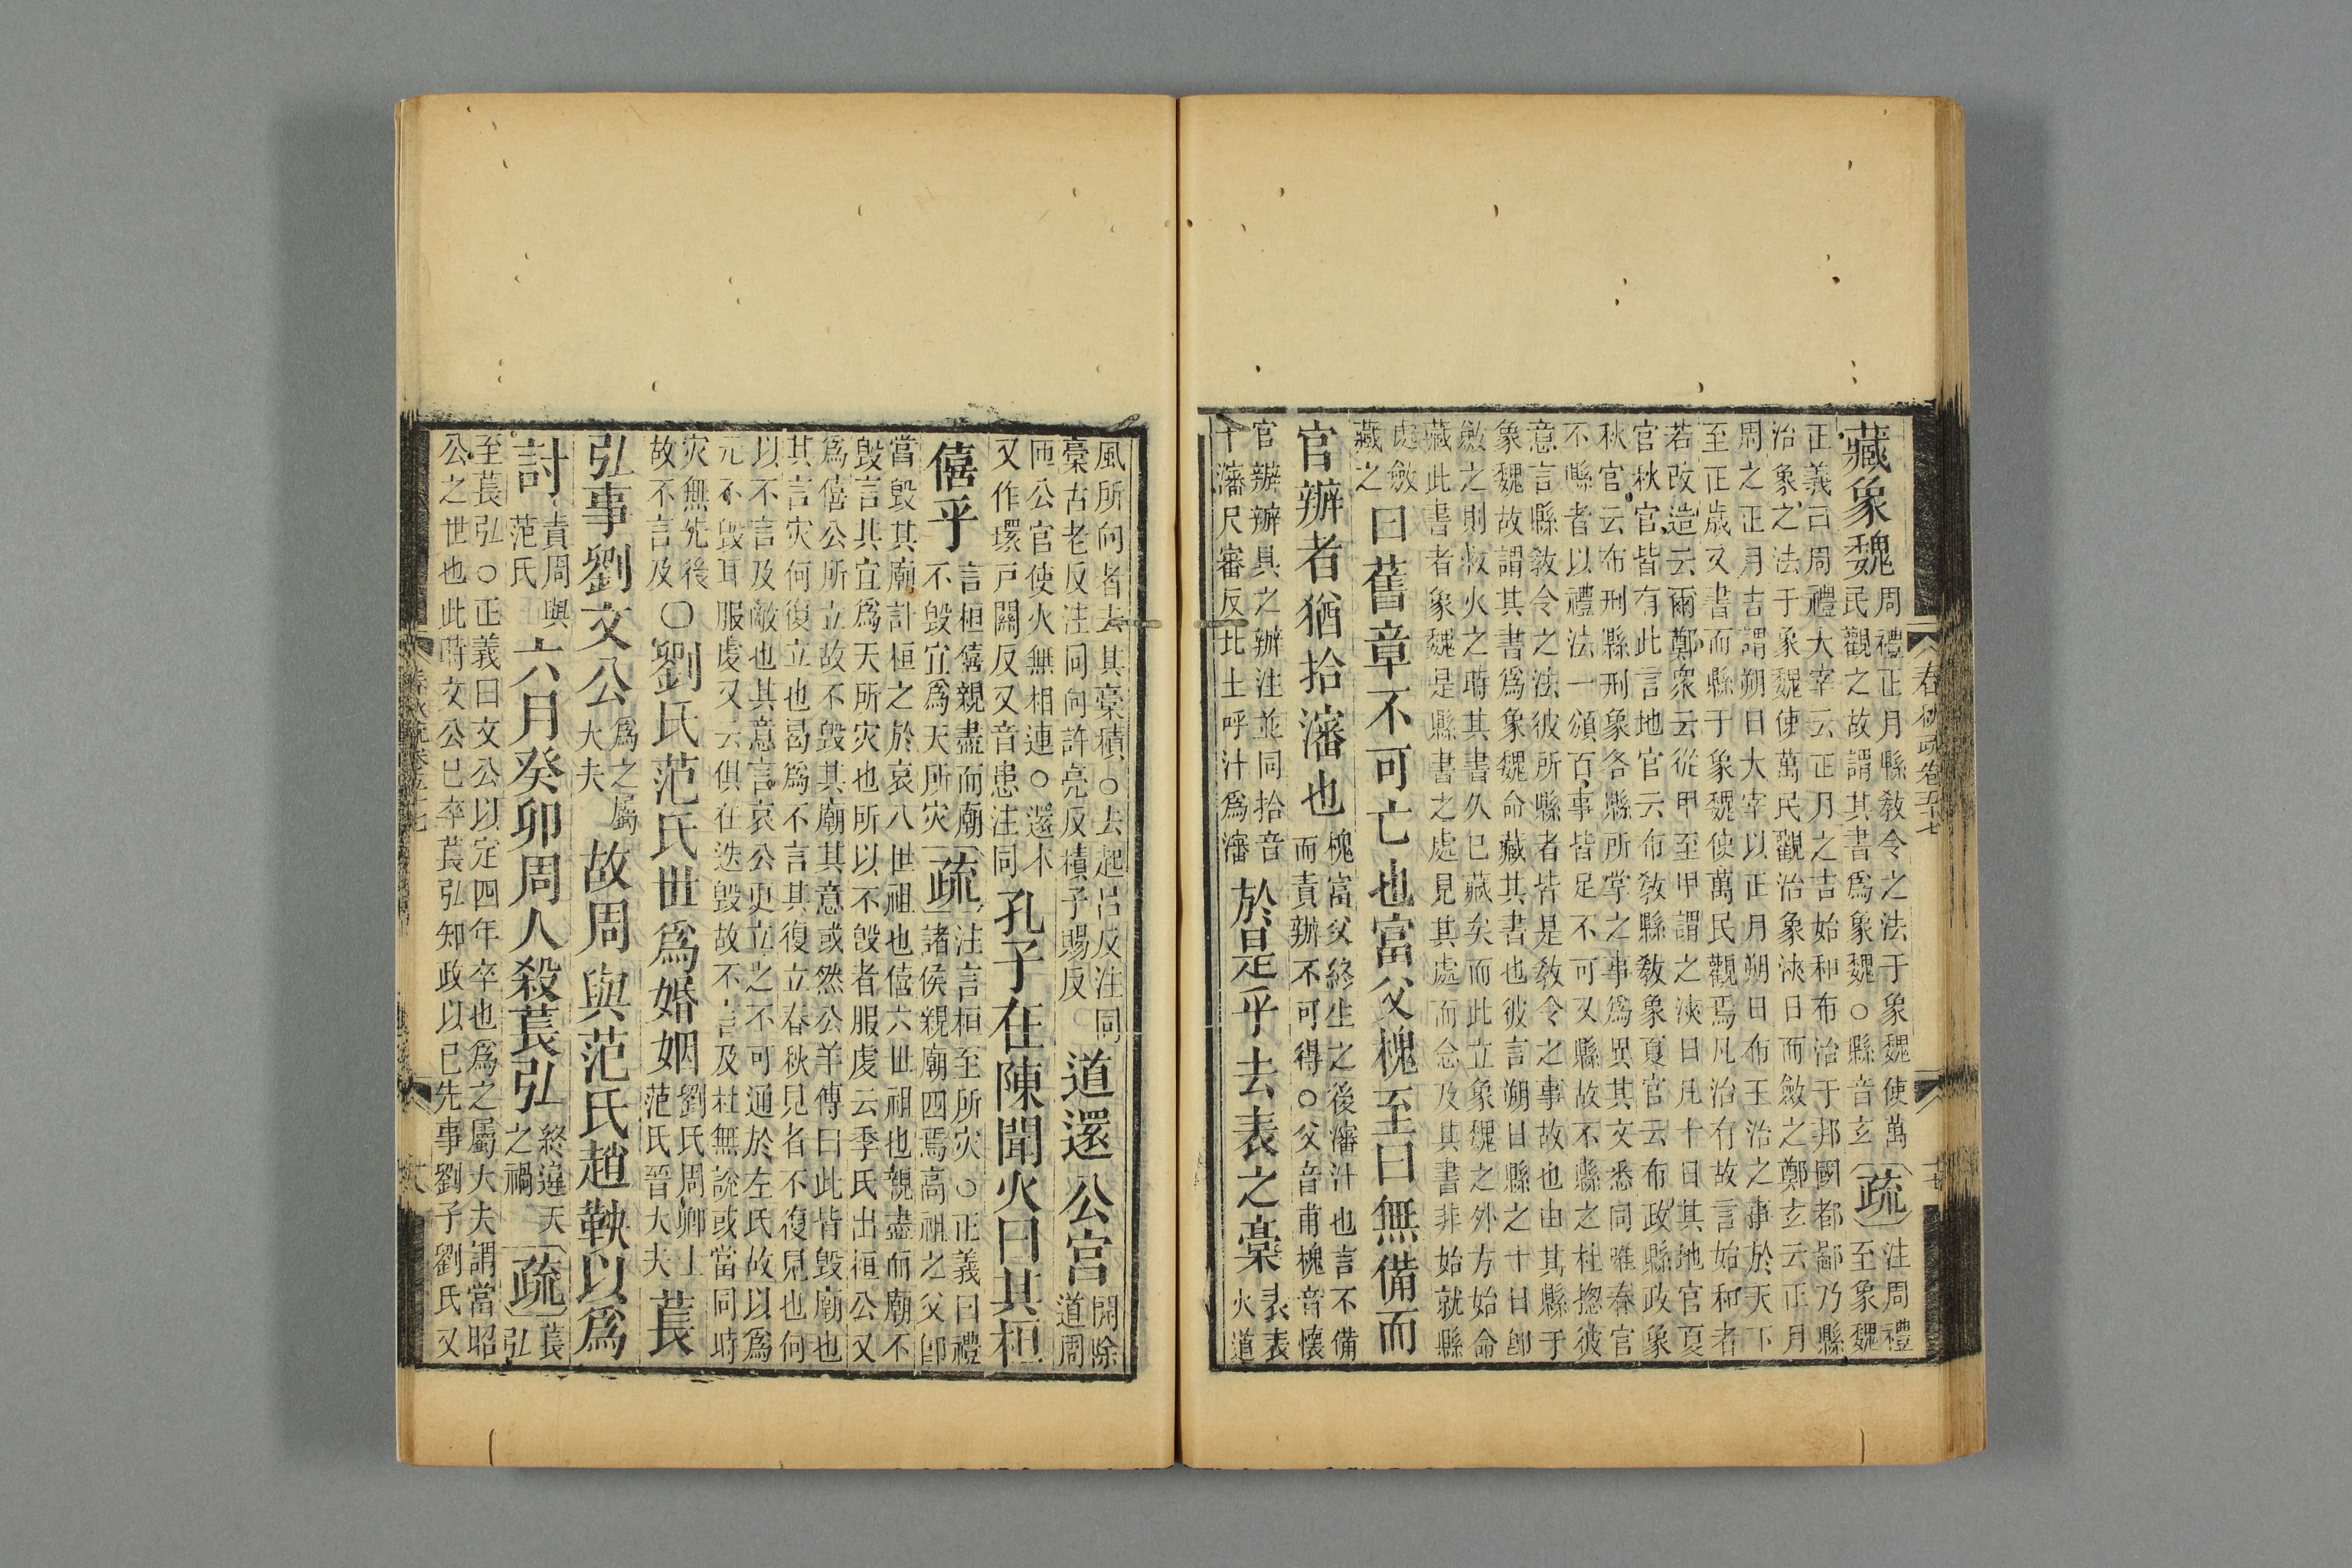 藏象魏周禮正月縣敎令之法于象魏使萬民觀之故謂其書爲象魏○縣音玄疏注周禮至象魏
正義曰周禮大宰云正月之吉始和布治于邦國都鄙乃縣
治象之法于象魏使萬民觀治象浹日而斂之鄭玄云正月
周之正月吉謂朔日大宰以正月朔日布王治之事於天下
至正歲又書而縣于象魏使萬民觀焉凡治有故言始和者
若改造云爾鄭衆云從甲至甲謂之浹日凡十日其地官夏
官秋官皆有此言地官云布敎縣敎象夏官云布政縣政象
秋官云布刑縣刑象各縣所掌之事爲異其文悉同唯春官
不縣者以禮法一頒百事皆足不可又縣故不縣之杜摠彼
意言縣敎令之法彼所縣者皆是敎令之事故也由其縣于
象魏故謂其書爲象魏命藏其書也彼言朔日縣之十日卽
斂之則救火之時其書久已藏矣而此立象魏之外方始命
藏此書者象魏是縣書之處見其處而念及其書非始就縣
處斂藏之曰舊章不可亡也富父槐至曰無備而
官辦者猶拾瀋也槐富父終生之後瀋汁也言不備而責辦不可得○父音甫槐音懷
官辦辦具之辦注並同拾音十瀋尺審反北土呼汁爲瀋於是乎去表之槀表表火道
風所向者去其槀積○去起呂反注同槀古老反注同向許亮反積子賜反道還公宮開除道周
匝公官使火無相連○還本又作環戶關反又音患注同孔子在陳聞火曰其桓
僖乎言桓僖親盡而廟不毀宜爲天所災疏注言桓至所災○正義曰禮諸侯親廟四焉高祖之父卽
當毀其廟計桓之於哀八世祖也僖六世祖也親盡而廟不
毀言其宜爲天所災也所以不毀者服虔云季氏出桓公又
爲僖公所立故不毀其廟其意或然公羊傳曰此皆毀廟也
其言灾何復立也曷爲不言其復立春秋見者不復見也何
以不言及敵也其意言哀公更立之不可通於左氏故以爲
元不毀耳服虔又云俱在迭毀故不言及杜無說或當同時
灾無先後
故不言及○劉氏范氏世爲婚姻劉氏周卿士范氏晉大夫萇
弘事劉文公爲之屬大夫故周與范氏趙鞅以爲
討責周與范氏六月癸卯周人殺萇弘終違天之禍疏萇弘
至萇弘○正義曰文公以定四年卒也爲之屬大夫謂當昭
公之世也此時文公已卒萇弘知政以已先事劉子劉氏又
春秋疏卷五十七
十七